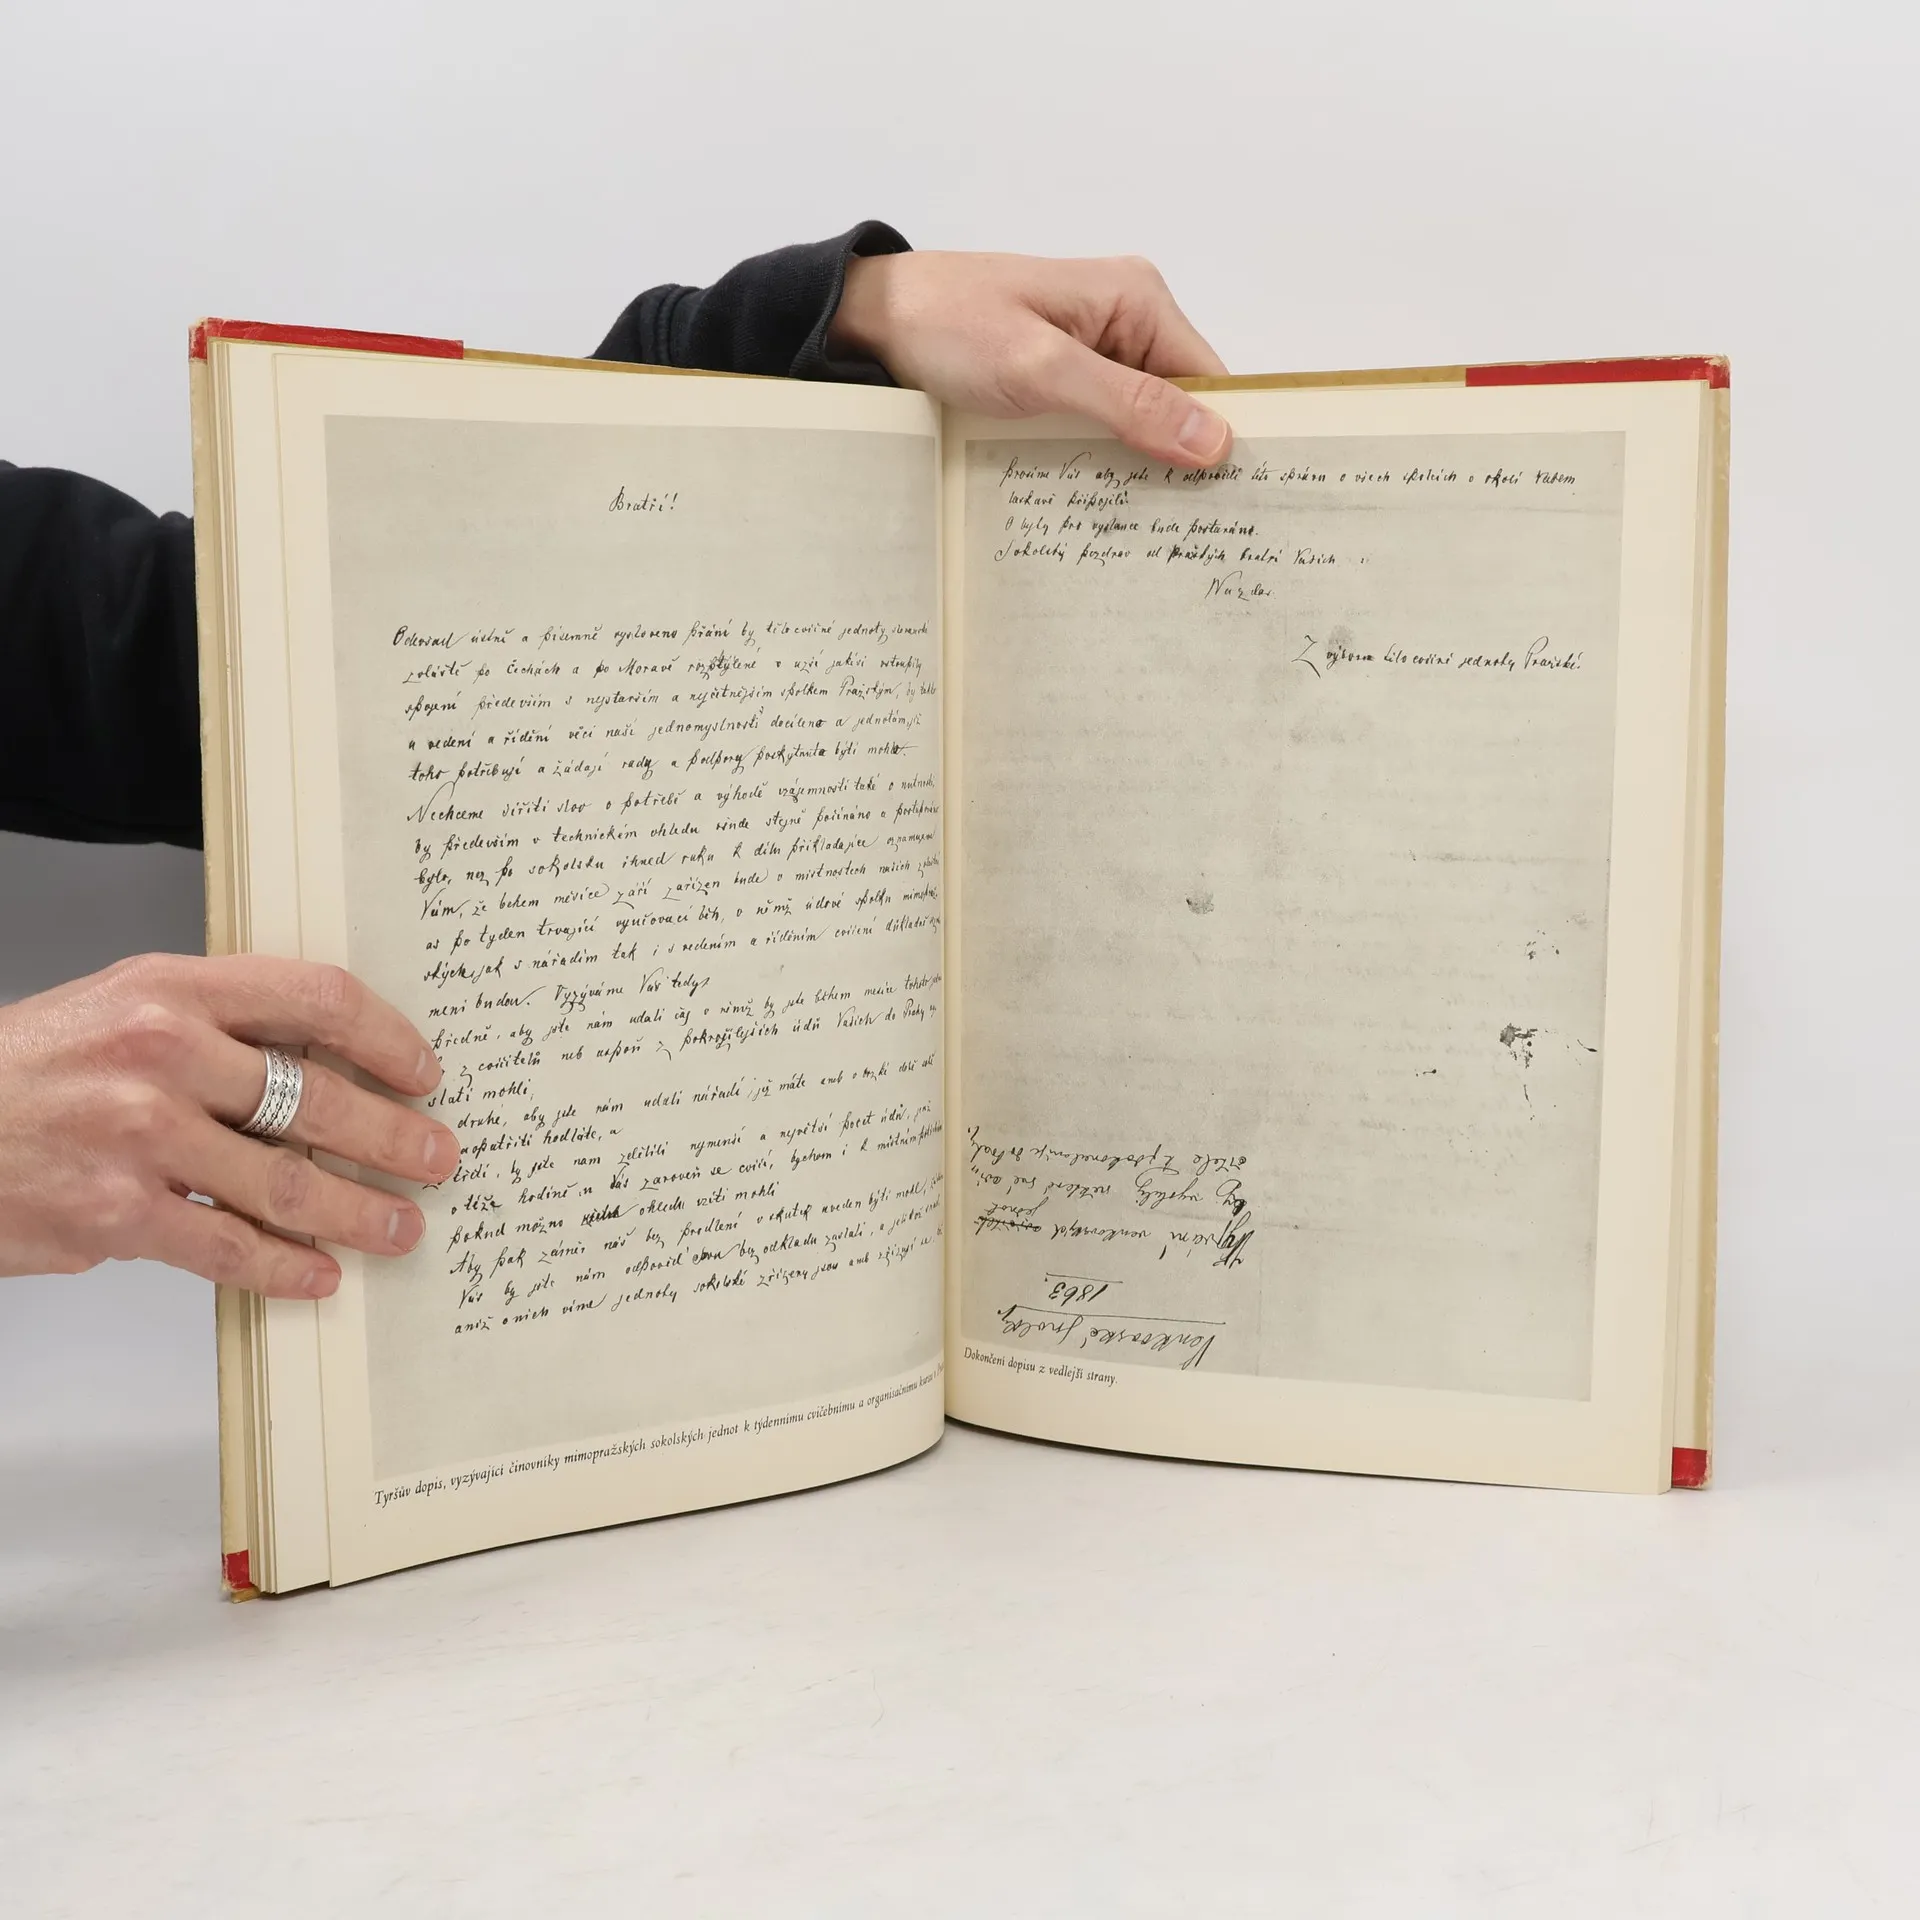 Bratří!
Odevšad ústně a písemně vysloveno přání by tělocvičné jednoty slovanské
zvláště po Čechách a po Moravě rozptýlené v užší jakési vstoupily
spojení především s nejstarším a nejčetnějším spolkem Pražským, by takto
u vedení a řídění věci naší jednomyslnosti docíleno a jednotám, již
toho potřebují a žádají rady a podpory poskytnuto býti mohlo.
Nechceme šířiti slov o potřebě a výhodě vzájemnosti také o nutnosti,
by především v technickém ohledu všude stejně počínáno a postupováno
bylo, než po sokolsku ihned ruku k dílu přikládajíce oznamujeme
Vám, že během měsíce září zařízen bude v místnostech našich zvláštní
as po tyden trvající vyučovací běh, v němž údové spolků mimopraž-
ských, jak s nářadím tak i s vedením a říděním cvičení důkladně
meni budou. Vyzýváme Vás tedy
předně, aby jste nám udali čas v němž by jste během měsíce tohoto
z cvičitelů neb aspoň z pokročilejších údů Vašich do Prahy vy-
slati mohli,
druhé, aby jste nám udali nářadí, jež máte aneb v brzké době
zaopatřiti hodláte, a
třetí, by jste nam zdělili nejmenší a největší počet údů, jež
v téže hodině u Vás zaroveň se cvičí, bychom i k místním
pokud možno ohledu vzíti mohli
Aby pak záměr náš bez prodlení v skutek uveden býti mohl,
Vás by jste nám odpověď bez odkladu zaslali, a jelikož
aniž o nich víme jednoty sokolské zřízeny jsou aneb zřizují se
Tyršův dopis, vyzývající činovníky mimopražských sokolských jednot k týdennímu cvičebnímu a organisačnímu kursu v
prosíme Vás aby jste k odpovědi této správu o všech spolcích v okolí Vašem
laskavě připojili.
O byty pro vyslance bude postaráno.
Sokolský pozdrav od Pražských bratří Vašich :
Na zdar.
Z výboru tělocvičné jednoty Pražské.
Venkovské spolky.
1863.
Vyzvání venkovských jednot
by vyslaly některé své cvi-
čitele k zdokonalení do Prahy.
Dokončení dopisu z vedlejší strany.